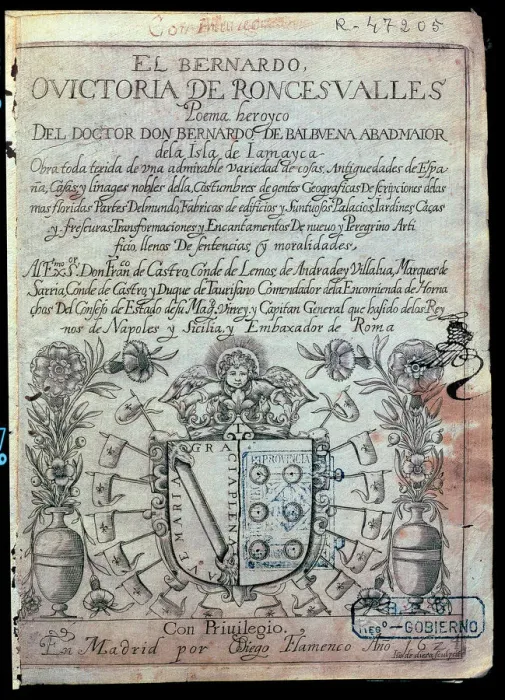 R-47205
EL BERNARDO,
O VICTORIA DE RONCESVALLES
Poema heroyco
DEL DOCTOR DON BERNARDO DE BALBVENA ABAD MAIOR
de la Isla de Iamayca
Obra toda texida de vna admirable variedad de cosas, Antiguedades de Espa-
ña, Casas, y linages nobles della, Costumbres de gentes Geograficas Descripciones de las
mas floridas Partes Del mundo, Fabricas de edificios y Suntuosos Palacios, Jardines, Caças
y frescuras, Transformaciones y Encantamentos De nuevo y Peregrino Arti
ficio, llenos De sentencias, y moralidades,
Al Ex.mo S.or Don Fran.co de Castro, Conde de Lemos, de Andrade y Villalua, Marques de
Sarria, Conde de Castro y Duque de Taurisano Comendador de la Encomienda de Horna
chos Del Consejo de Estado de su Mag.d Virrey, y Capitan General que ha sido de los Rey
nos de Napoles y Sicilia, y Embaxador de Roma
AVE MARIA GRACIA PLENA
PROVINCIA
Con Priuilegio,
GOBIERNO
En Madrid por Diego Flamenco Año 162